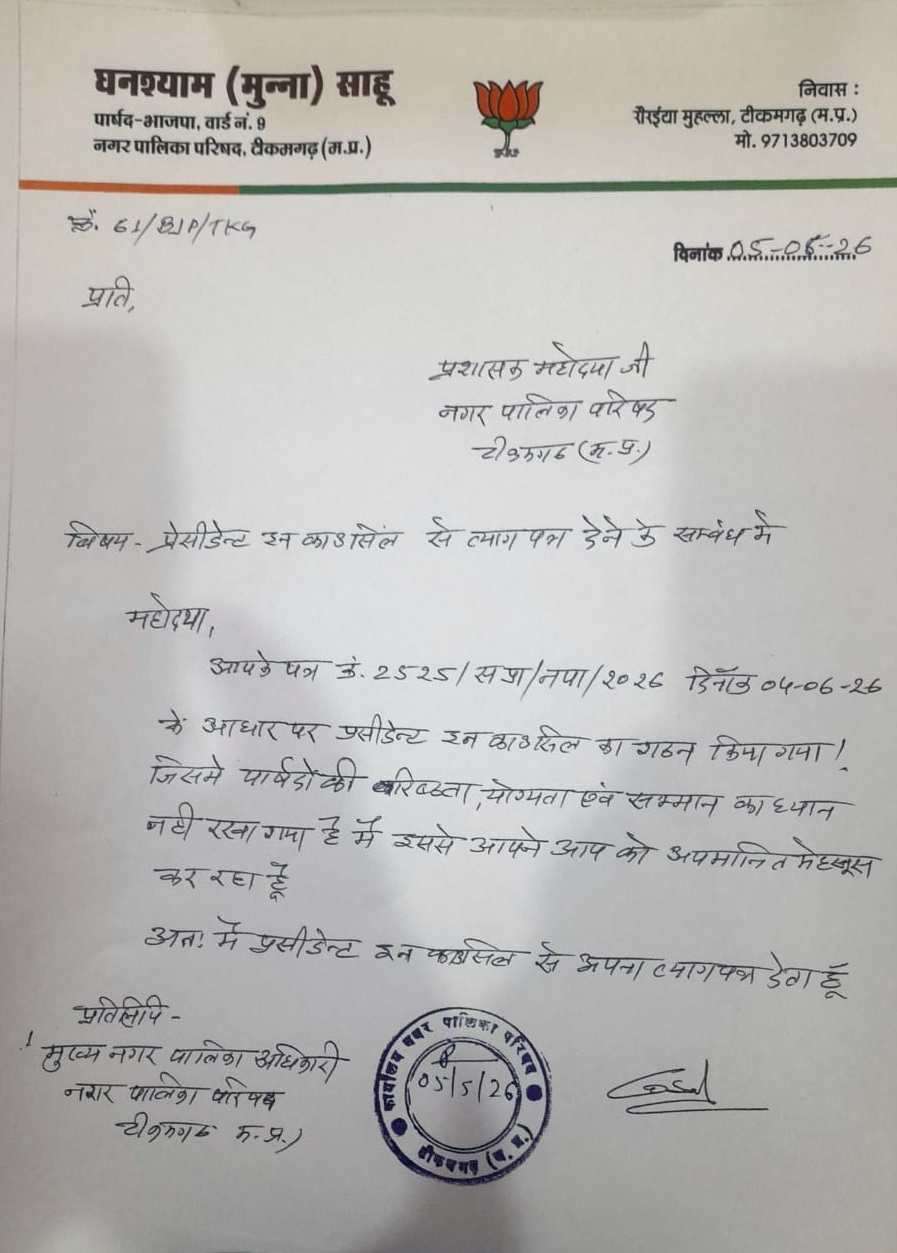 घनश्याम (मुन्ना) साहू
पार्षद-भाजपा, वार्ड नं. 9
नगर पालिका परिषद, टीकमगढ़ (म.प्र.)
निवास :
रौरईया मुहल्ला, टीकमगढ़ (म.प्र.)
मो. 9713803709
क्रं. 61/BJP/TKG
दिनांक 05-06-26
प्रति,
प्रशासक महोदया जी
नगर पालिका परिषद
टीकमगढ (म.प्र.)
विषय - प्रेसीडेन्ट इन काउसिंल से त्याग पत्र देने के सम्बंध मे
महोदया,
आपके पत्र क्रं. 2525/सप्रा/नपा/2026 दिनाँक 04-06-26
के आधार पर प्रसीडेन्ट इन काउसिल का गठन किया गया!
जिसमे पार्षदों की वरिष्ठता, योग्यता एवं सम्मान का ध्यान
नही रखा गया है मैं इससे आपने आप को अपमानित मेहसूस
कर रहा हूँ
अतः मैं प्रसीडेन्ट इन काउसिल से अपना त्यागपत्र देता हूँ
प्रतिलिपि -
मुख्य नगर पालिका अधिकारी
नगर पालिका परिषद
टीकमगढ म.प्र.)
कार्यालय नगर पालिका परिषद
05/5/26
टीकमगढ़ (म. प्र.)